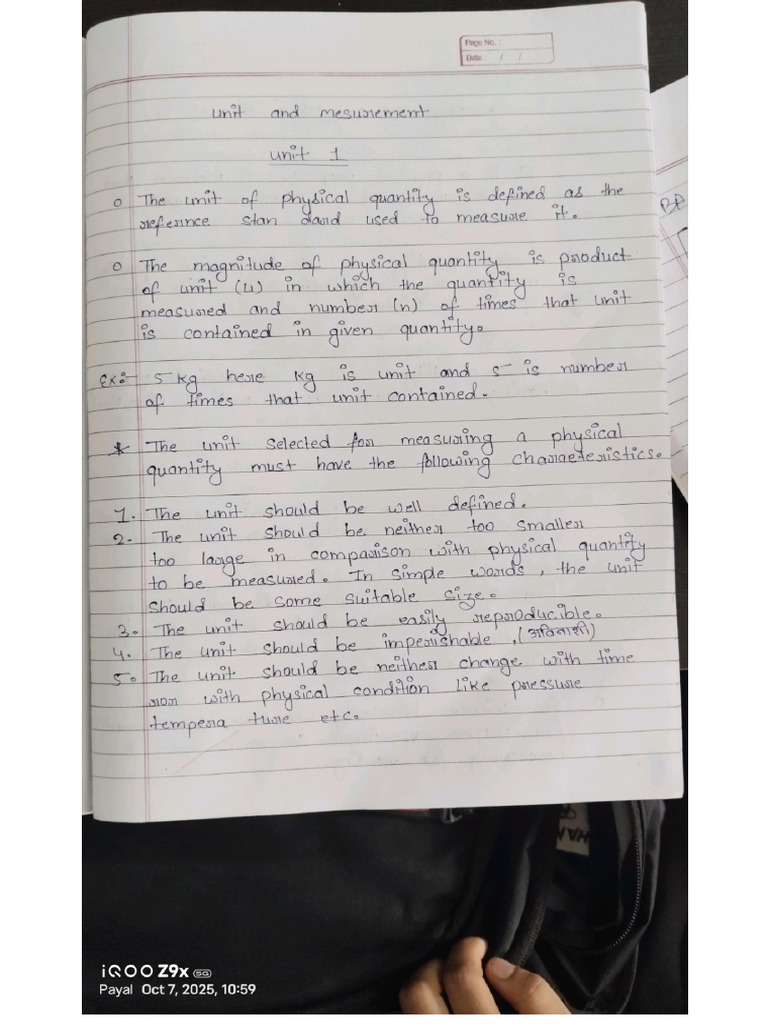 Page No. :
Date / /
Unit and mesurement
Unit 1
o The unit of physical quantity is defined as the
refernce stan dard used to measure it.
o The magnitude of physical quantity is product
of unit (u) in which the quantity is
measured and number (n) of times that unit
is contained in given quantity.
Ex:- 5 kg here kg is unit and 5 is number
of times that unit contained.
* The unit selected for measuring a physical
quantity must have the following characteristics.
1. The unit should be well defined.
2. The unit should be neither too smaller
too large in comparison with physical quantity
to be measured. In simple words, the unit
should be some suitable size.
3. The unit should be easily reproducible.
4. The unit should be imperishable, (अविनाशी)
5. The unit should be neither change with time
ror with physical condition like pressure
tempera ture etc.
iQOO Z9x 5G
Payal Oct 7, 2025, 10:59